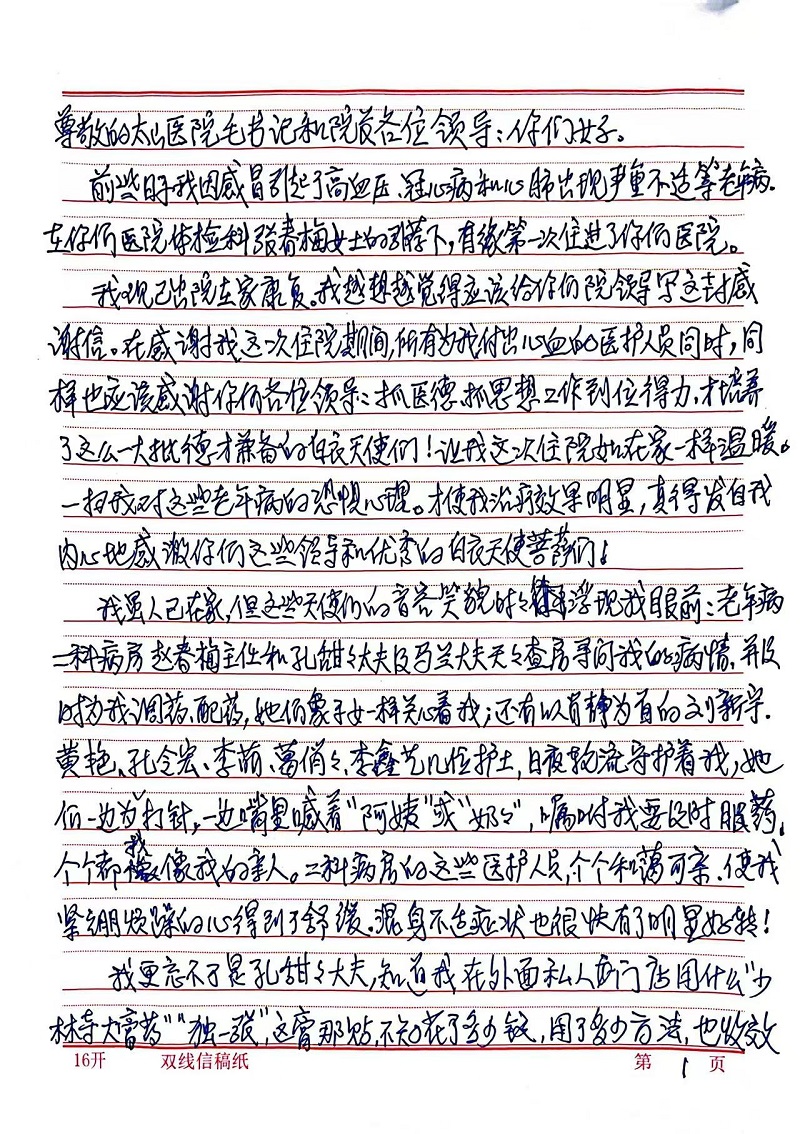 尊敬的太山医院毛书记和院长各位领导：你们好。
前些日子我因感冒引起了高血压、冠心病和心肺出现严重不适等老年病.
在你们医院体检科张春梅女士的引荐下，有缘第一次住进了你们医院。
我现已出院在家康复。我越想越觉得应该给你们院领导写这封感
谢信。在感谢我这次住院期间，所有为我付出心血的医护人员同时，同
样也应该感谢你们各位领导：抓医德、抓思想工作到位得力，才培养
了这么一大批德才兼备的白衣天使们！让我这次住院如在家一样温暖。
一扫我对这些老年病的恐惧心理。才使我治疗效果明显，真得发自我
内心地感激你们这些领导和优秀的白衣天使菩萨们！
我虽人已在家，但这些天使们的音容笑貌时々浮现我眼前：老年病
二科病房赵春梅主任和孔甜々大夫及马兰大夫天々查房寻问我的病情，并及
时为我调药、配药，她们象子女一样关心着我；还有以肖静为首的刘新宇.
黄艳、孔令宏、李萌、葛俏々、李鑫艺几位护士，日夜轮流守护着我，她
们一边为打针，一边嘴里喊着“阿姨”或“奶々”，嘱咐我要及时服药，
个个都像我的亲人。二科病房的这些医护人员，个个和蔼可亲，使我
紧绷烦躁的心得到了舒缓。混身不适症状也很快有了明显好转！
我更忘不了是孔甜々大夫，知道我在外面私人药门店用什么“少
林寺大膏药”“独一张”这膏那贴，不知花了多少钱，用了多少方法，也收效
16开 双线信稿纸 第 1 页